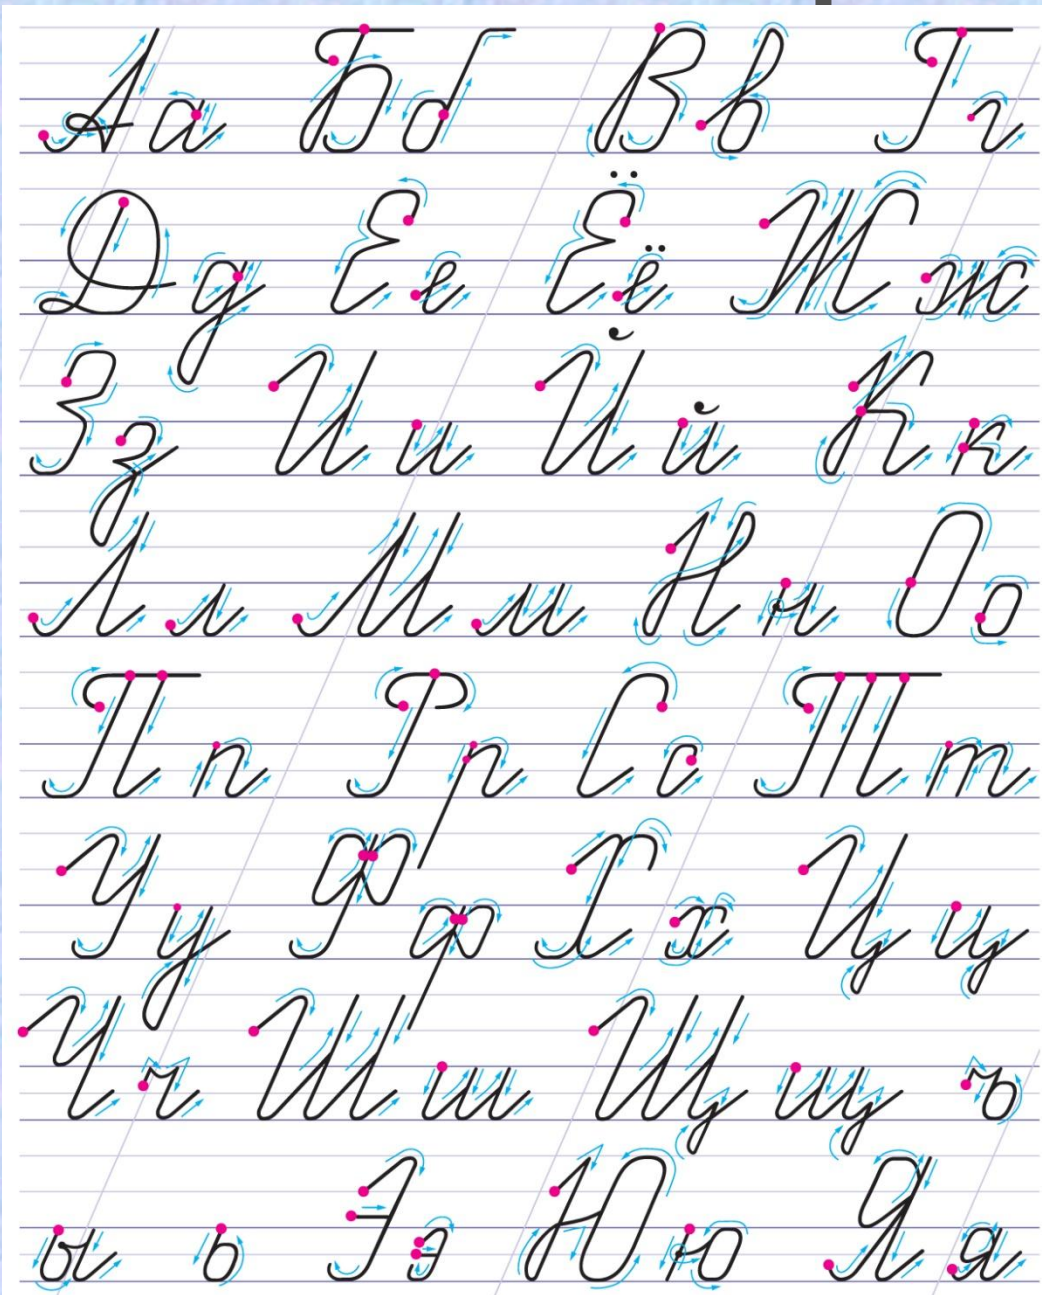 А а Б б В в Г г
Д д Е е Ё ё Ж ж
З з И и Й й К к
Л л М м Н н О о
П п Р р С с Т т
У у Ф ф Х х Ц ц
Ч ч Ш ш Щ щ ъ
ы ь Э э Ю ю Я я